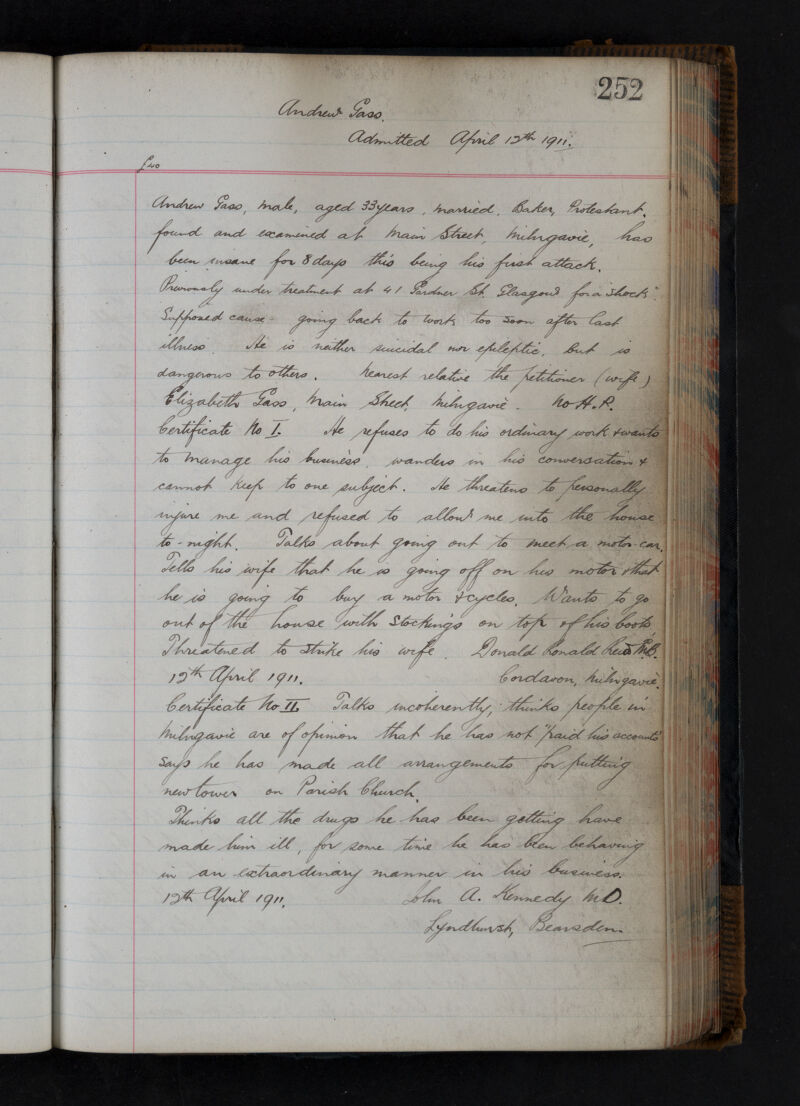 252
Andrew Gass.
Admitted April 12th 1911.
£40
Andrew Gass, male, aged 33 years, married, Baker, Protestant.
found and examined at Main Street, Milngavie, has
been insane for 8 days this being his first attack.
Previously under treatment at 41 Gardner St. Glasgow for a "shock".
Supposed cause - going back to work too soon after last
illness. He is neither suicidal nor epileptic, but is
dangerous to others. Nearest relative the petitioner (wife)
Elizabeth Gass, Main Street, Milngavie. No H.P.
Certificate No I. He refuses to do his ordinary work & wants
to manage his business, wanders in his conversation &
cannot keep to one subject. He threatens to personally
injure me and refused to allow me into the house
to-night. Talks about going out to meet a motor-car.
Tells his wife that he is going off on his motor & that
he is going to buy a motor & cycles. Wants to go
out of the house with stockings on top of his boots.
Threatened to strike his wife. Donald Ronald M.B.
12th April 1911. Cordavon, Milngavie.
Certificate No II. Talks incoherently, thinks people in
Milngavie are of opinion that he has not "paid his accounts"
says he has made all arrangements for putting
new tower on Parish Church.
Thinks all the drugs he has been getting have
made him ill, for some time he has been behaving
in an extraordinary manner in his business.
12th April 1911. John A. Kennedy M.D.
Lyndhurst, Bearsden.